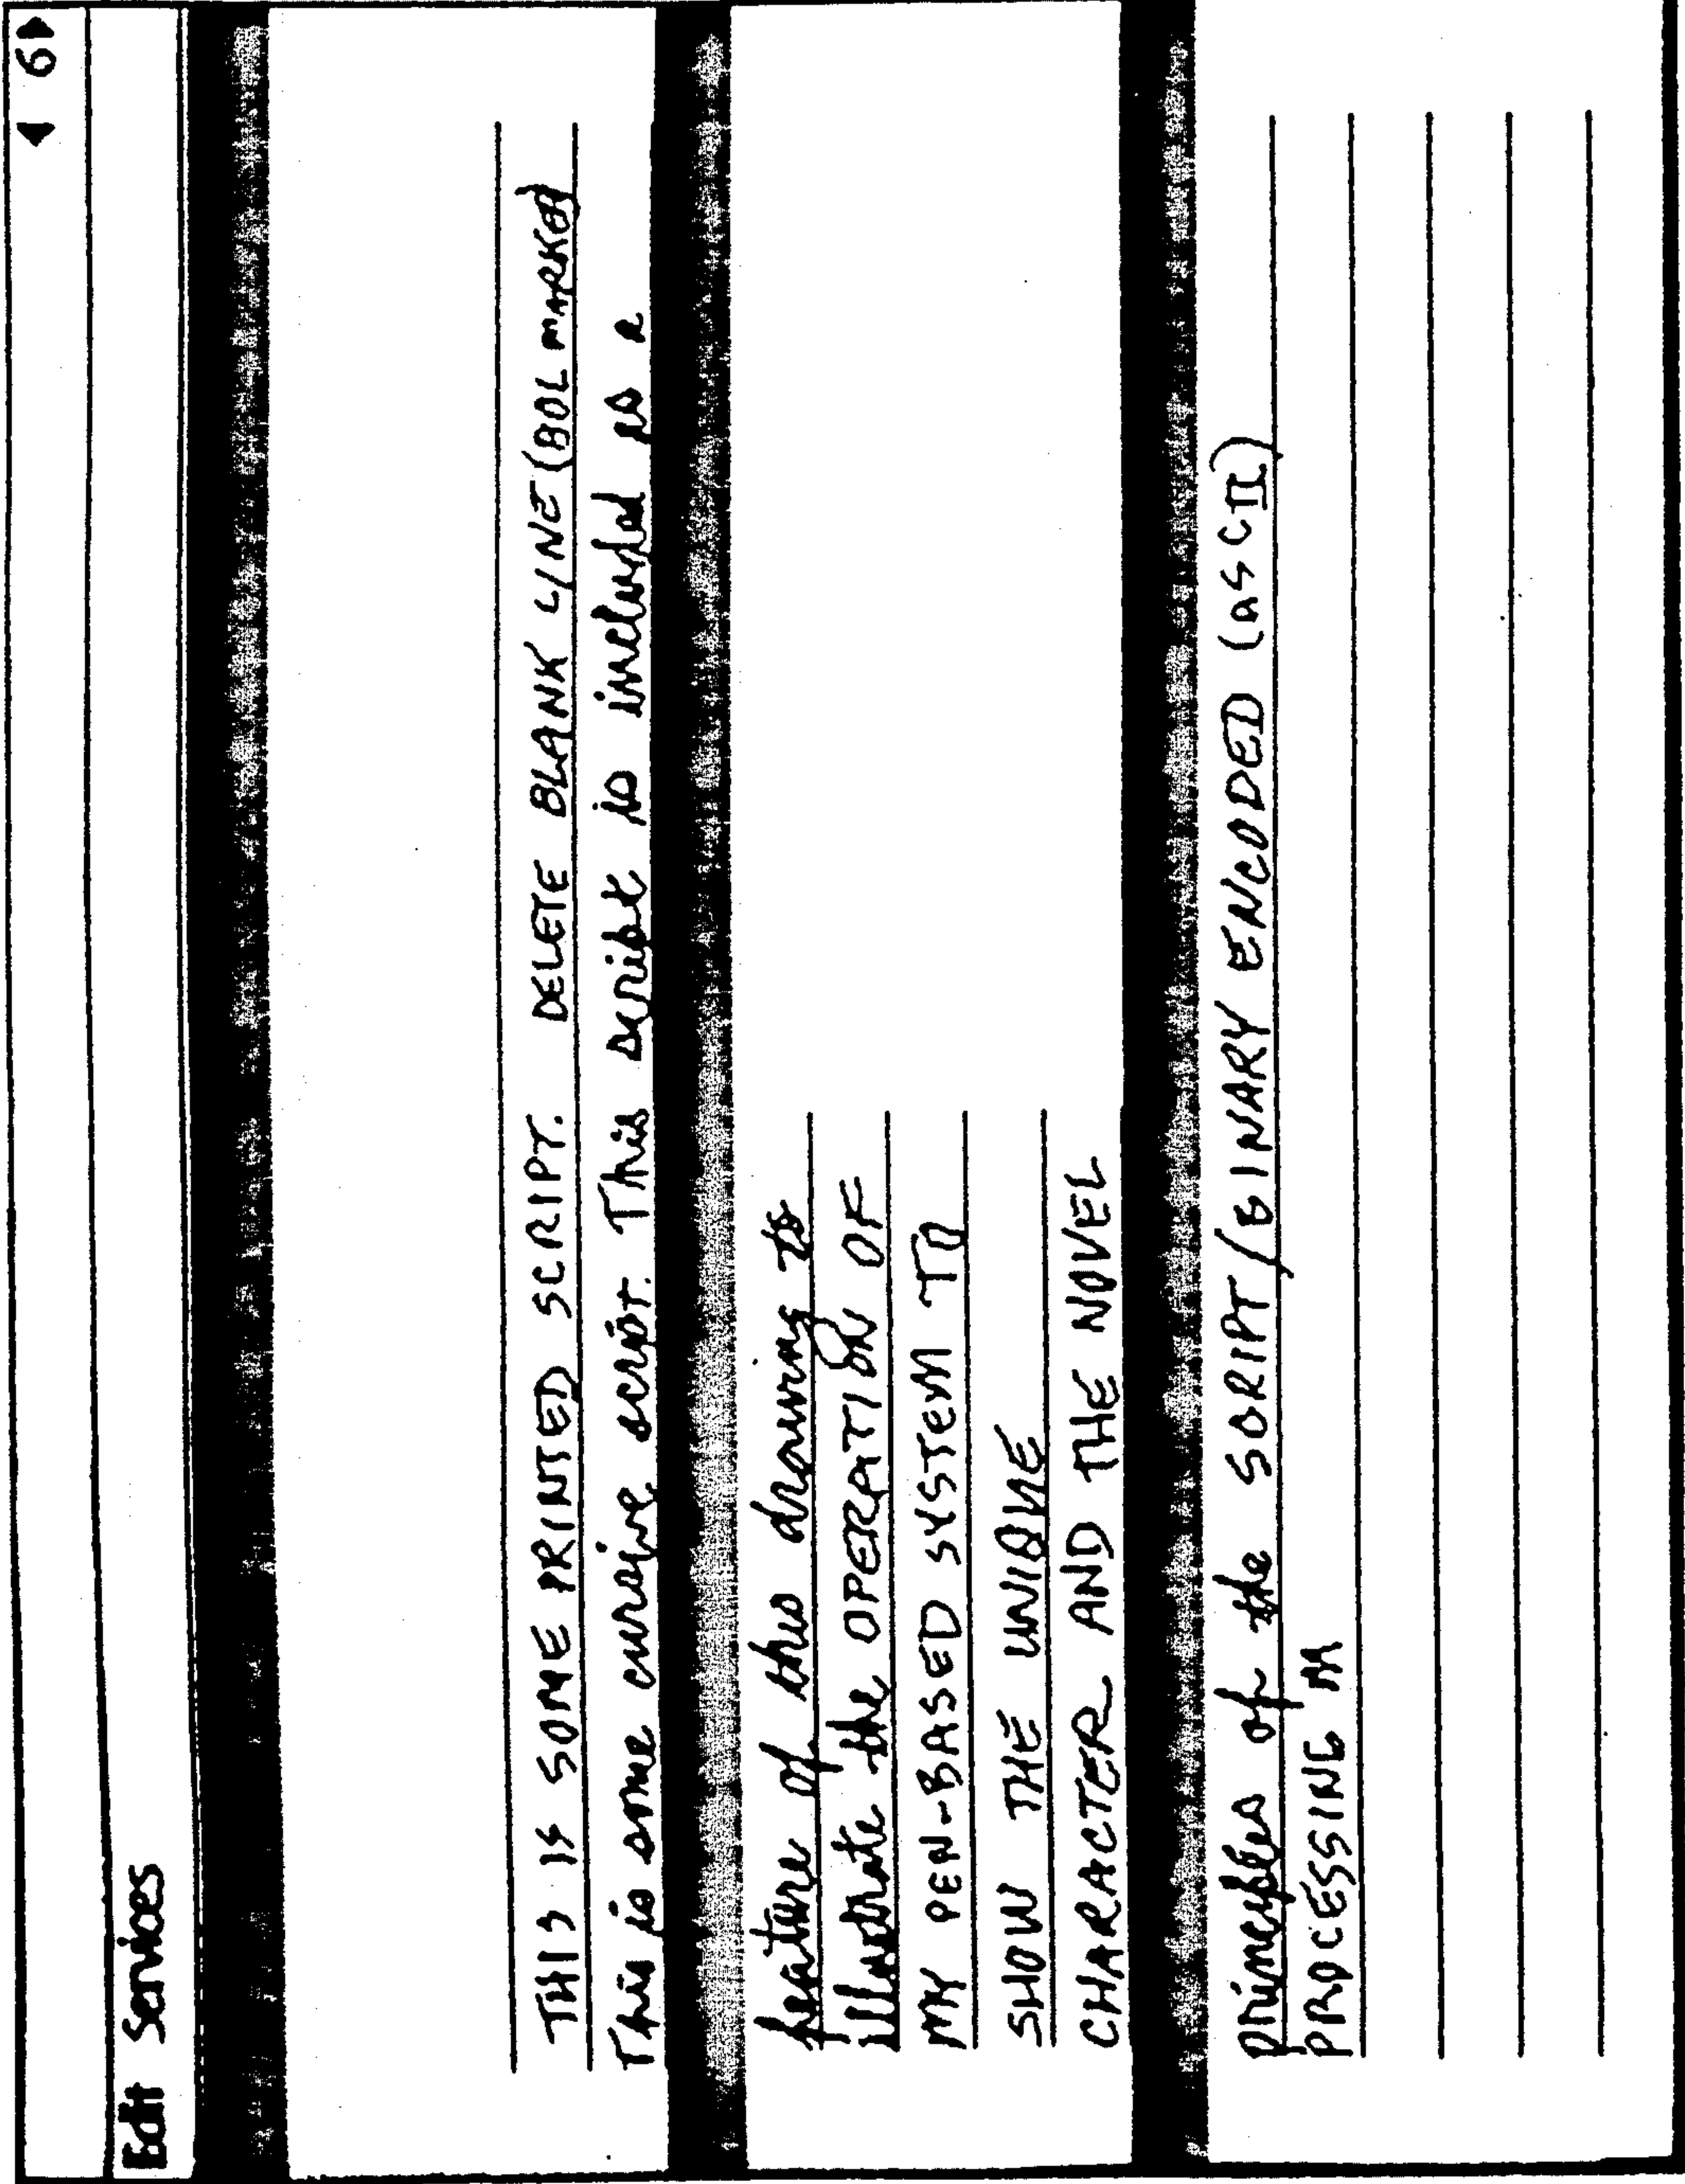 ◀ 6 ▶
Edit Services
THIS IS SOME PRINTED SCRIPT. DELETE BLANK LINE (BOL MARKER)
This is some cursive script. This script is included as a
feature of this drawing to
illustrate the OPERATION OF
MY PEN-BASED SYSTEM TO
SHOW THE UNIQUE
CHARACTER AND THE NOVEL
principles of the SCRIPT/BINARY ENCODED (ASCII)
PROCESSING M